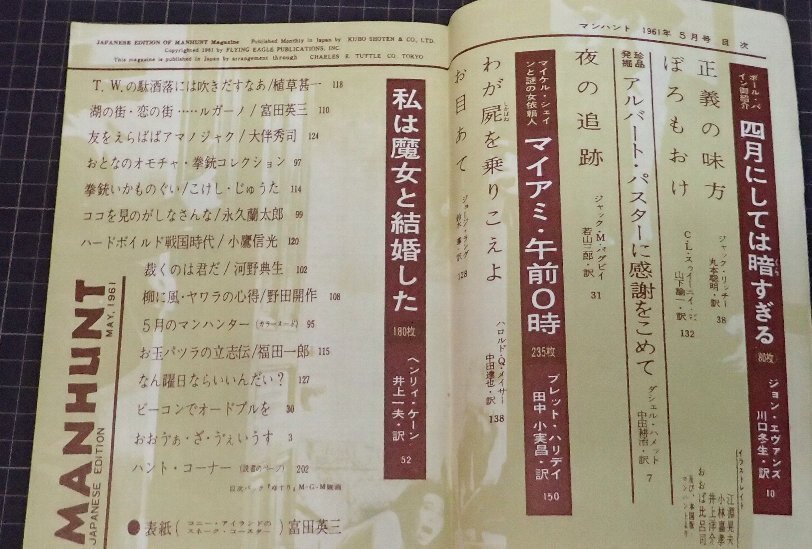 マンハント 1961年 5月号 目次
ポール・パイン御紹介
四月にしては暗すぎる
80枚
ジョン・エヴァンズ
川口冬生・訳 10
正義の味方
ジャック・リッチー
丸本聡明・訳 38
ぼろもおけ
山下諭一・訳 132
珍品発掘
アルバート・パスターに感謝をこめて
ダシェル・ハメット
中田耕治・訳 7
夜の追跡
ジャック・M・バグビイ
若山三郎・訳 31
マイケル・シェインと謎の女依頼人
マイアミ・午前0時
235枚
ブレット・ハリデイ
田中小実昌・訳 150
わが屍を乗りこえよ
しかばね
ハロルド・Q・メイサー
中田達也・訳 138
お目あて
128
私は魔女と結婚した
180枚
ヘンリイ・ケーン
井上一夫・訳 52
イラストレイト
江淵晃夫
小林嘉孝
井上洋介
おおば比呂司
及び、本国版マンハントより
JAPANESE EDITION OF MANHUNT Magazine Published Monthly in Japan by KUBO SHOTEN & CO, LTD.
Copyrighted 1961 by FLYING EAGLE PUBLICATIONS, INC.
This magazine is published in Japan by arrangement through CHARLES E. TUTTLE CO. TOKYO
T.W.の駄洒落には吹きだすなあ/植草甚一 118
湖の街・恋の街……ルガーノ/富田英三 110
友をえらばばアマノジャク/大伴秀司 124
おとなのオモチャ・拳銃コレクション 97
拳銃いかものぐい/こけし・じゅうた 114
ココを見のがしなさんな/永久蘭太郎 99
ハードボイルド戦国時代/小鷹信光 120
裁くのは君だ/河野典生 102
柳に風・ヤワラの心得/野田開作 108
5月のマンハンター(カラーヌード) 95
お玉パツラの立志伝/福田一郎 115
なん曜日ならいいんだい? 127
ビーコンでオードブルを 30
おおうぁ・ざ・うぇいうす 3
ハント・コーナー(読者のページ) 202
目次バック『ゆすり』M・G・M映画
●表紙(コニー・アイランドのスネーク・コースター)富田英三
MANHUNT
JAPANESE EDITION
MAY, 1961